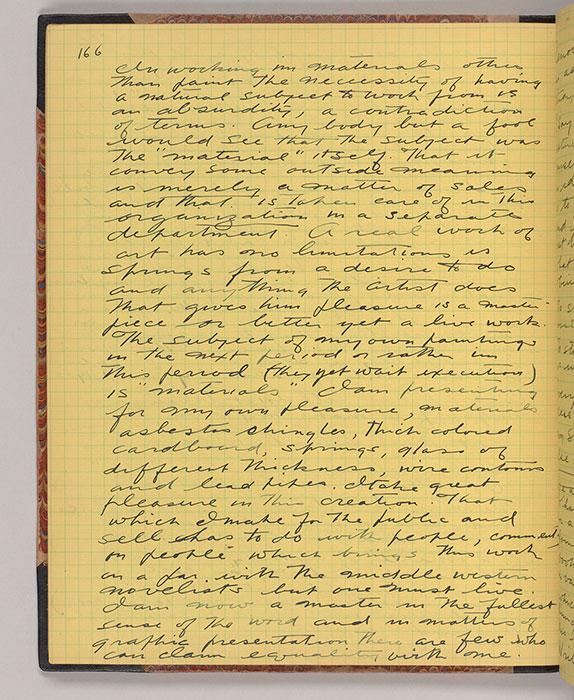 166
In working in materials other
than paint the necessity of having
a natural subject to work from is
an absurdity, a contradiction
of terms. Any body but a fool
would see that the subject was
the "material" itself. That it
convey some outside meaning
is merely a matter of sales
and that is taken care of in this
organization in a separate
department. A real work of
art has no limitations is
springs from a desire to do
and anything the artist does
that gives him pleasure is a master
piece or better yet a live work.
The subject of my own paintings
in the next period or rather in
this period (they yet wait execution)
is "materials" I am presenting
for my own pleasure, materials
asbestos shingles, thick colored
cardboard, springs, glass of
different thickness, wire contours
and lead pipes. I take great
pleasure in this creation. That
which I make for the public and
sell has to do with people, comment,
on people which brings this work
on a par with the middle western
novelists but one must live.
I am now a master in the fullest
sense of the word and in matters of
graphic presentation there are few who
can claim equality with me.